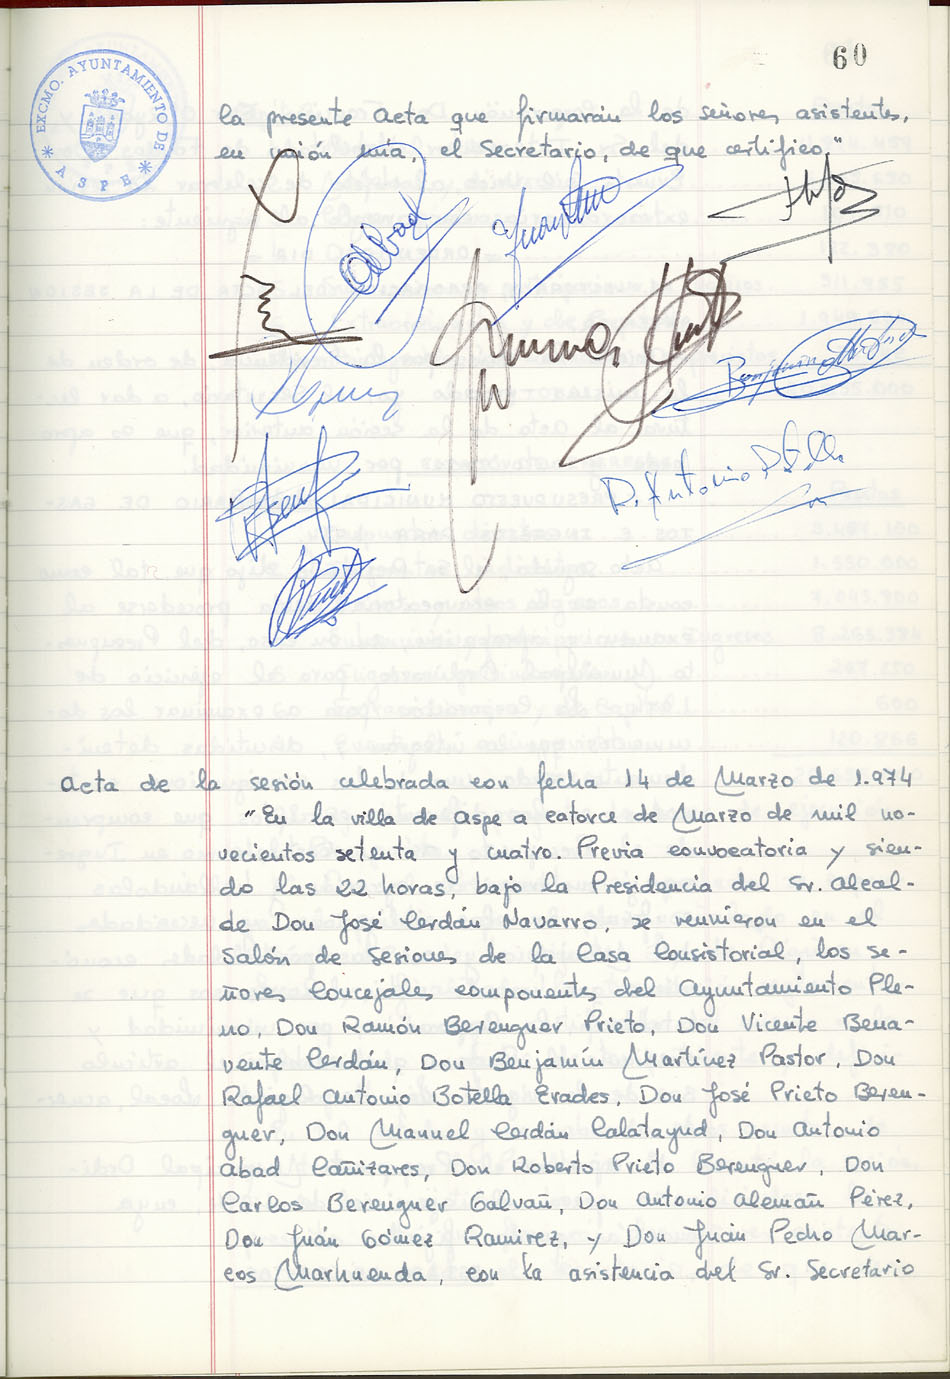 60
EXCMO. AYUNTAMIENTO DE
* ASPE *
la presente Acta que firmarán los señores asistentes,
en unión mía, el Secretario, de que certifico."
Abad
Benjamin Martinez
R. Antonio Botella
Acta de la sesión celebrada con fecha 14 de Marzo de 1.974
"En la villa de Aspe a catorce de Marzo de mil no-
vecientos setenta y cuatro. Previa convocatoria y sien-
do las 22 horas, bajo la Presidencia del Sr. Alcal-
de Don José Cerdán Navarro, se reunieron en el
Salón de Sesiones de la Casa Consistorial, los se-
ñores Concejales componentes del Ayuntamiento Ple-
no, Don Ramón Berenguer Prieto, Don Vicente Bena-
vente Cerdán, Don Benjamín Martínez Pastor, Don
Rafael Antonio Botella Erades, Don José Prieto Beren-
guer, Don Manuel Cerdán Calatayud, Don Antonio
Abad Cañizares, Don Roberto Prieto Berenguer, Don
Carlos Berenguer Galvañ, Don Antonio Alemañ Pérez,
Don Juán Gómez Ramirez, y Don Juán Pedro Mar-
cos Marhuenda, con la asistencia del Sr. Secretario